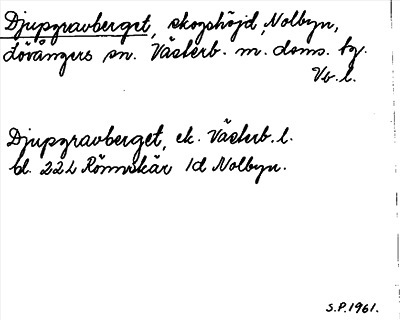 Djupgravberget, skogshöjd, Nolbyn,
Lövångers sn. Västerb. m. doms. tg.
Vb. l.
Djupgravberget, ek. Västerb. l.
bl. 22L Rönnskär 1d Nolbyn.
S.P. 1961.